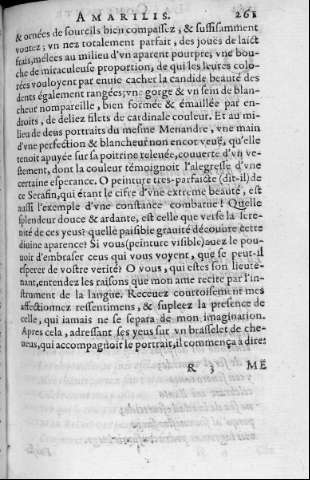 AMARILIS. 261
& ornées de sourcils bien compassez, & suffisamment
voutez; vn nez totalement parfait, des jouës de laict
frais, mêlees au milieu d'vn aparent pourpre, vne bou-
che de miraculeuse proportion, de qui les leures colo-
rées vouloyent par enuie cacher la candide beauté des
dents également rangées; vne gorge & vn sein de blan-
cheur nompareille, bien formée & émaillée par en-
droits, de deliez filets de cardinale couleur. Et au mi-
lieu de deus portraits du mesme Menandre, vne main
d'vne perfection & blancheur non encor veuë, qu'elle
tenoit apuyée sur sa poitrine releuée, couuerte d'vn ve-
stement, dont la couleur témoignoit l'alegresse d'vne
certaine esperance. O peinture tres-parfaicte (dit-il) de
ce Serafin, qui étant le cifre d'vne extreme beauté, est
aussi l'exemple d'vne constance combatuë! Quelle
splendeur douce & ardante, est celle que verse la sere-
nité de ces yeus? quelle paisible grauité découure cette
diuine aparence? Si vous (peinture visible) auez le pou-
uoir d'embraser ceus qui vous voyent, que se peut-il
esperer de vostre verité? O vous, qui estes son lieute-
nant, entendez les raisons que mon ame recite par l'in-
strument de la langue. Receuez courtoisement mes
affectionnez ressentimens, & supleez la presence de
celle, qui iamais ne se separa de mon imagination.
Apres cela, adressant ses yeus sur vn brasselet de che-
ueus, qui accompagnoit le portrait, il commença à dire:
R 3 ME